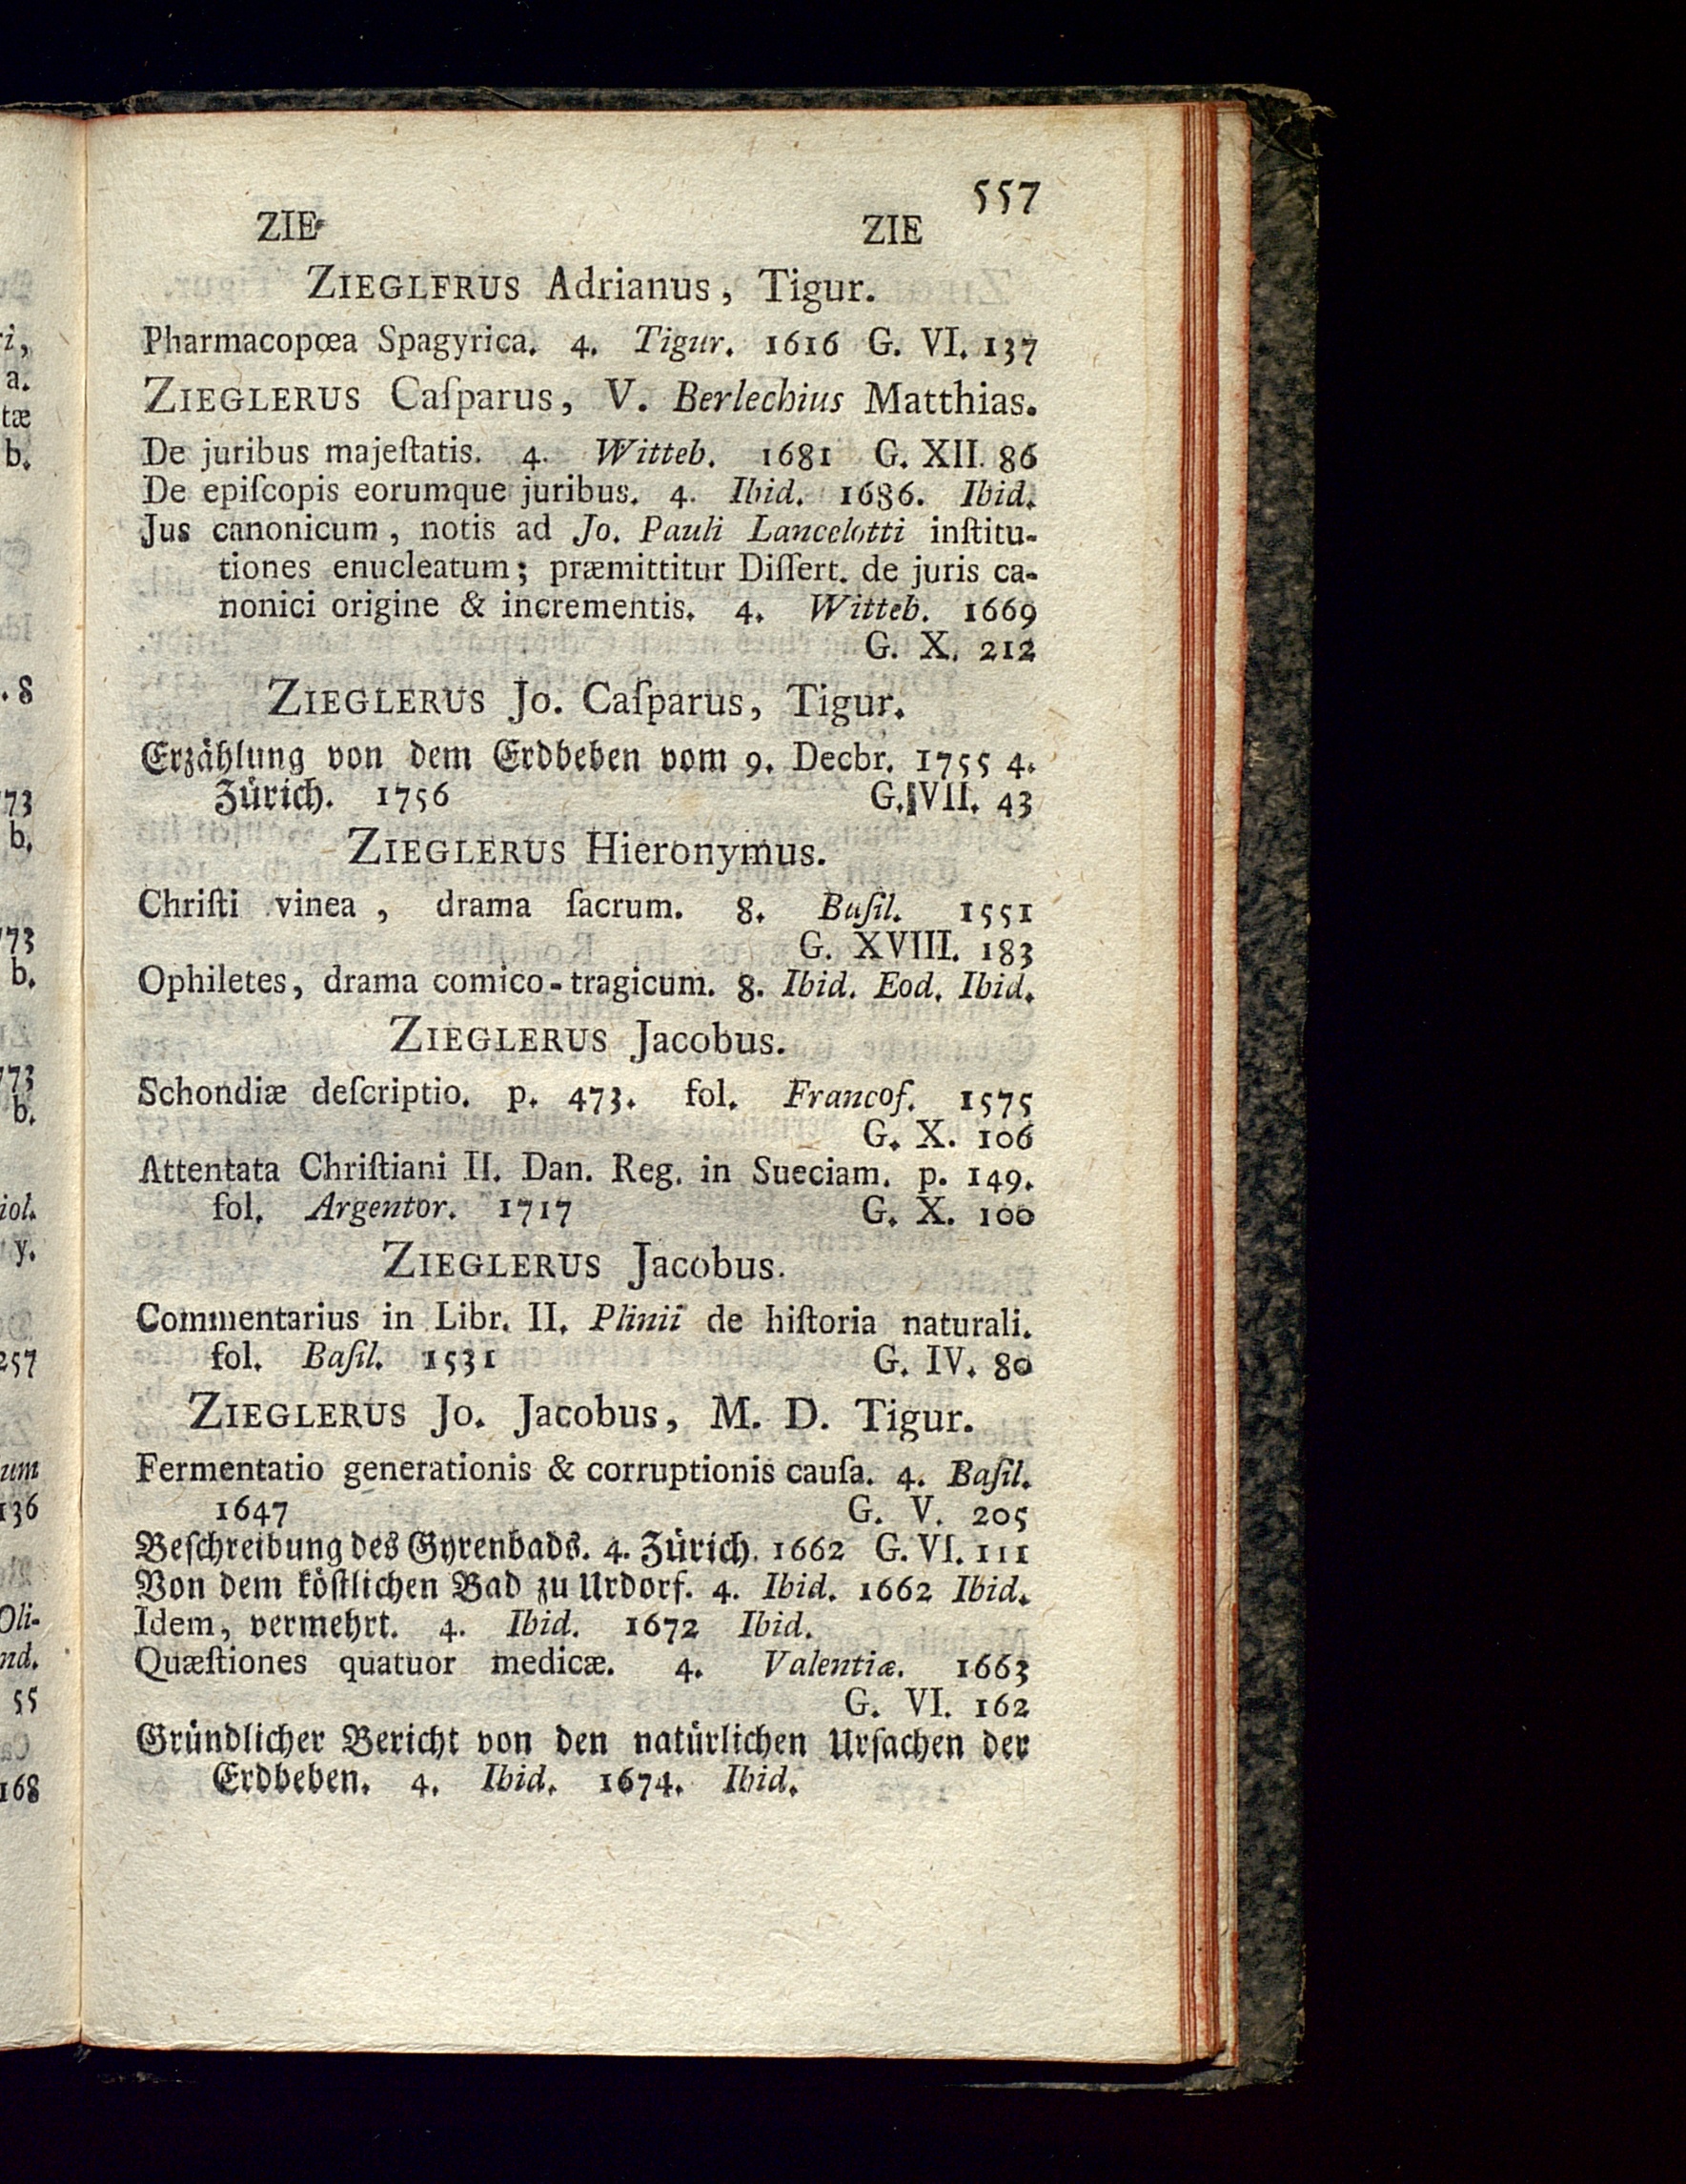 557
ZIE ZIE
ZIEGLFRUS Adrianus, Tigur.
Pharmacopœa Spagyrica. 4. Tigur. 1616 G. VI. 137
ZIEGLERUS Caſparus, V. Berlechius Matthias.
De juribus majeſtatis. 4. Witteb. 1681 G. XII. 86
De epiſcopis eorumque juribus. 4. Ibid. 1686. Ibid.
Jus canonicum, notis ad Jo. Pauli Lancelotti inſtitu-
tiones enucleatum; præmittitur Diſſert. de juris ca-
nonici origine & incrementis. 4. Witteb. 1669
G. X. 212
ZIEGLERUS Jo. Caſparus, Tigur.
Erzählung von dem Erdbeben vom 9. Decbr. 1755 4.
Zürich. 1756 G. VII. 43
ZIEGLERUS Hieronymus.
Chriſti vinea, drama ſacrum. 8. Baſil. 1551
G. XVIII. 183
Ophiletes, drama comico-tragicum. 8. Ibid. Eod. Ibid.
ZIEGLERUS Jacobus.
Schondiæ deſcriptio. p. 473. fol. Francof. 1575
G. X. 106
Attentata Chriſtiani II. Dan. Reg. in Sueciam. p. 149.
fol. Argentor. 1717 G. X. 100
ZIEGLERUS Jacobus.
Commentarius in Libr. II. Plinii de hiſtoria naturali.
fol. Baſil. 1531 G. IV. 80
ZIEGLERUS Jo. Jacobus, M. D. Tigur.
Fermentatio generationis & corruptionis cauſa. 4. Baſil.
1647 G. V. 205
Beſchreibung des Gyrenbads. 4. Zürich. 1662 G. VI. 111
Von dem köſtlichen Bad zu Urdorf. 4. Ibid. 1662 Ibid.
Idem, vermehrt. 4. Ibid. 1672 Ibid.
Quæſtiones quatuor medicæ. 4. Valentiæ. 1663
G. VI. 162
Gründlicher Bericht von den natürlichen Urſachen der
Erdbeben. 4. Ibid. 1674. Ibid.